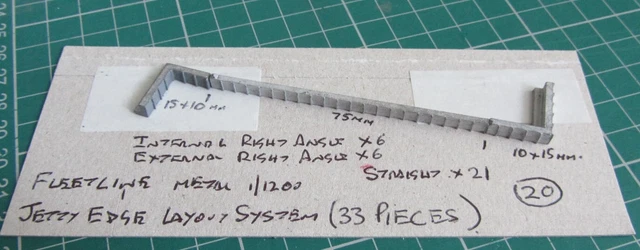 15x10mm
75mm
10x15mm.
INTERNAL RIGHT ANGLE x6
EXTERNAL RIGHT ANGLE x6
STRAIGHT x21
FLEETLINE METAL 1/1200
20
JETTY EDGE LAYOUT SYSTEM (33 PIECES)